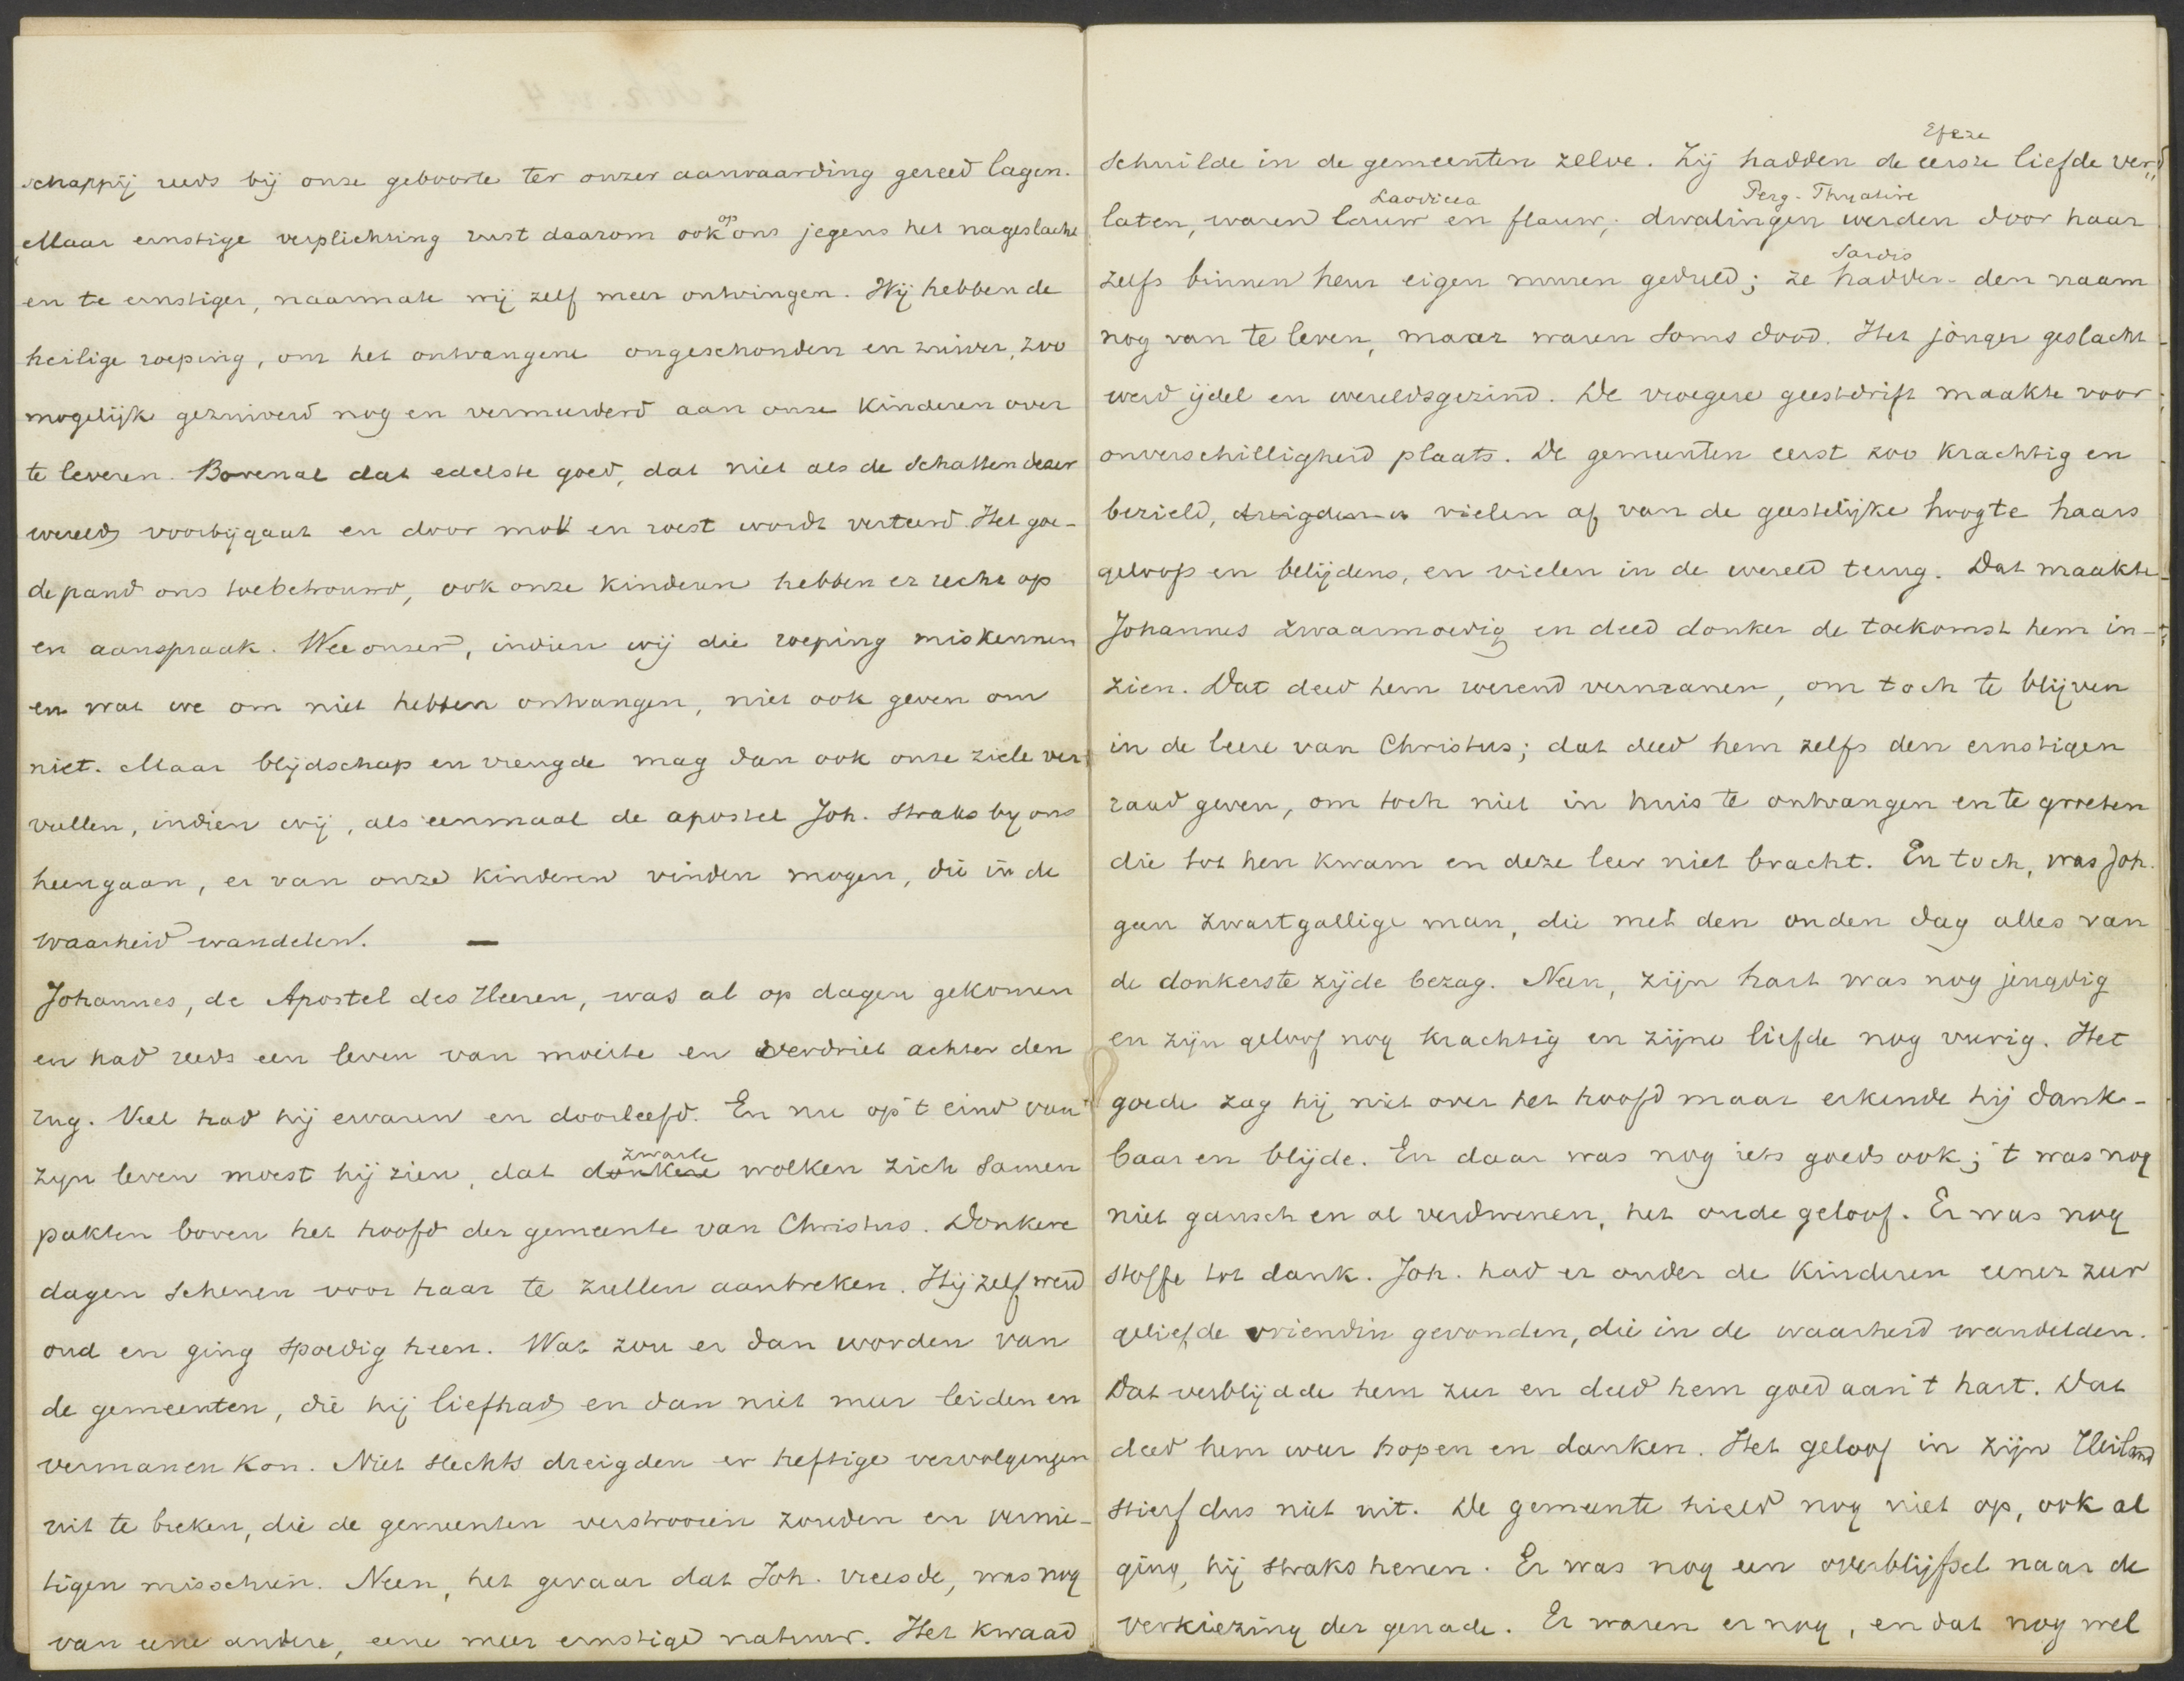 schappij reeds bij onze geboorte ter onzer aanvaarding gereed lagen.
Maar ernstige verplichting rust daarom ook op ons jegens het nageslacht
en te ernstiger, naarmate wij zelf meer ontvingen. Wij hebben de
heilige roeping, om het ontvangene ongeschonden en zuiver, zoo
mogelijk gezuiverd nog en vermeerderd aan onze kinderen over
te leveren. Bovenal dat edelste goed, dat niet als de schatten dezer
wereld voorbijgaat en door mot en roest wordt verteerd. Het goe-
de pand ons toebetrouwd, ook onze kinderen hebben er recht op
en aanspraak. Wee onzer, indien wij die roeping miskennen
en wat we om niet hebben ontvangen, niet ook geven om
niet. Maar blijdschap en vreugde mag dan ook onze ziele ver-
vullen, indien wij, als eenmaal de apostel Joh. straks by ons
heengaan, er van onze kinderen vinden mogen, die in de
waarheid wandelen. —
Johannes, de Apostel des Heeren, was al op dagen gekomen
en had reeds een leven van moeite en verdriet achter den
rug. Veel had hij ervaren en doorleefd. En nu op 't eind van
zijn leven moest hij zien, dat donkere zwarte wolken zich samen
pakten boven het hoofd der gemeente van Christus. Donkere
dagen schenen voor haar te zullen aanbreken. Hij zelf werd
oud en ging spoedig heen. Wat zou er dan worden van
de gemeenten, die hij liefhad en dan niet meer leiden en
vermanen kon. Niet slechts dreigden er heftige vervolgingen
uit te breken, die de gemeenten verstrooien zouden en vernie-
tigen misschien. Neen, het gevaar dat Joh. vreesde, was nog
van eene andere, eene meer ernstige natuur. Het kwaad
schuilde in de gemeenten zelve. Zij hadden de eerste liefde ver„
Efeze
laten, waren lauw en flauw; dwalingen werden door haar
Laodicea Perg. Thyatire
zelfs binnen heur eigen muren geduld; ze hadden den naam
Sardis
nog van te leven, maar waren soms dood. Het jonger geslacht
werd ijdel en wereldsgezind. De vroegere geestdrift maakte voor
onverschilligheid plaats. De gemeenten eerst zoo krachtig en
bezield, dreigden er vielen af van de geestelijke hoogte haars
geloofs en belijdens, en vielen in de wereld terug. Dat maakte
Johannes zwaarmoedig en deed donker de toekomst hem in-
zien. Dat deed hem roerend vermanen, om toch te blijven
in de leere van Christus; dat deed hem zelfs den ernstigen
raad geven, om toch niet in huis te ontvangen en te groeten
die tot hen kwam en deze leer niet bracht. En toch, was Joh.
geen zwartgallige man, die met den ouden dag alles van
de donkerste zijde bezag. Neen, zijn hart was nog jeugdig
en zijn geloof nog krachtig en zijne liefde nog vurig. Het
goede zag hij niet over het hoofd maar erkende hij dank-
baar en blijde. En daar was nog iets goeds ook; 't was nog
niet gansch en al verdwenen, het oude geloof. Er was nog
stoffe tot dank. Joh. had er onder de kinderen eener zeer
geliefde vriendin gevonden, die in de waarheid wandelden.
Dat verblijdde hem zeer en deed hem goed aan 't hart. Dat
deed hem weer hopen en danken. Het geloof in zijn Heiland
stierf dus niet uit. De gemeente hield nog niet op, ook al
ging hij straks henen. Er was nog een overblijfsel naar de
verkiezing der genade. Er waren er nog, en dat nog wel